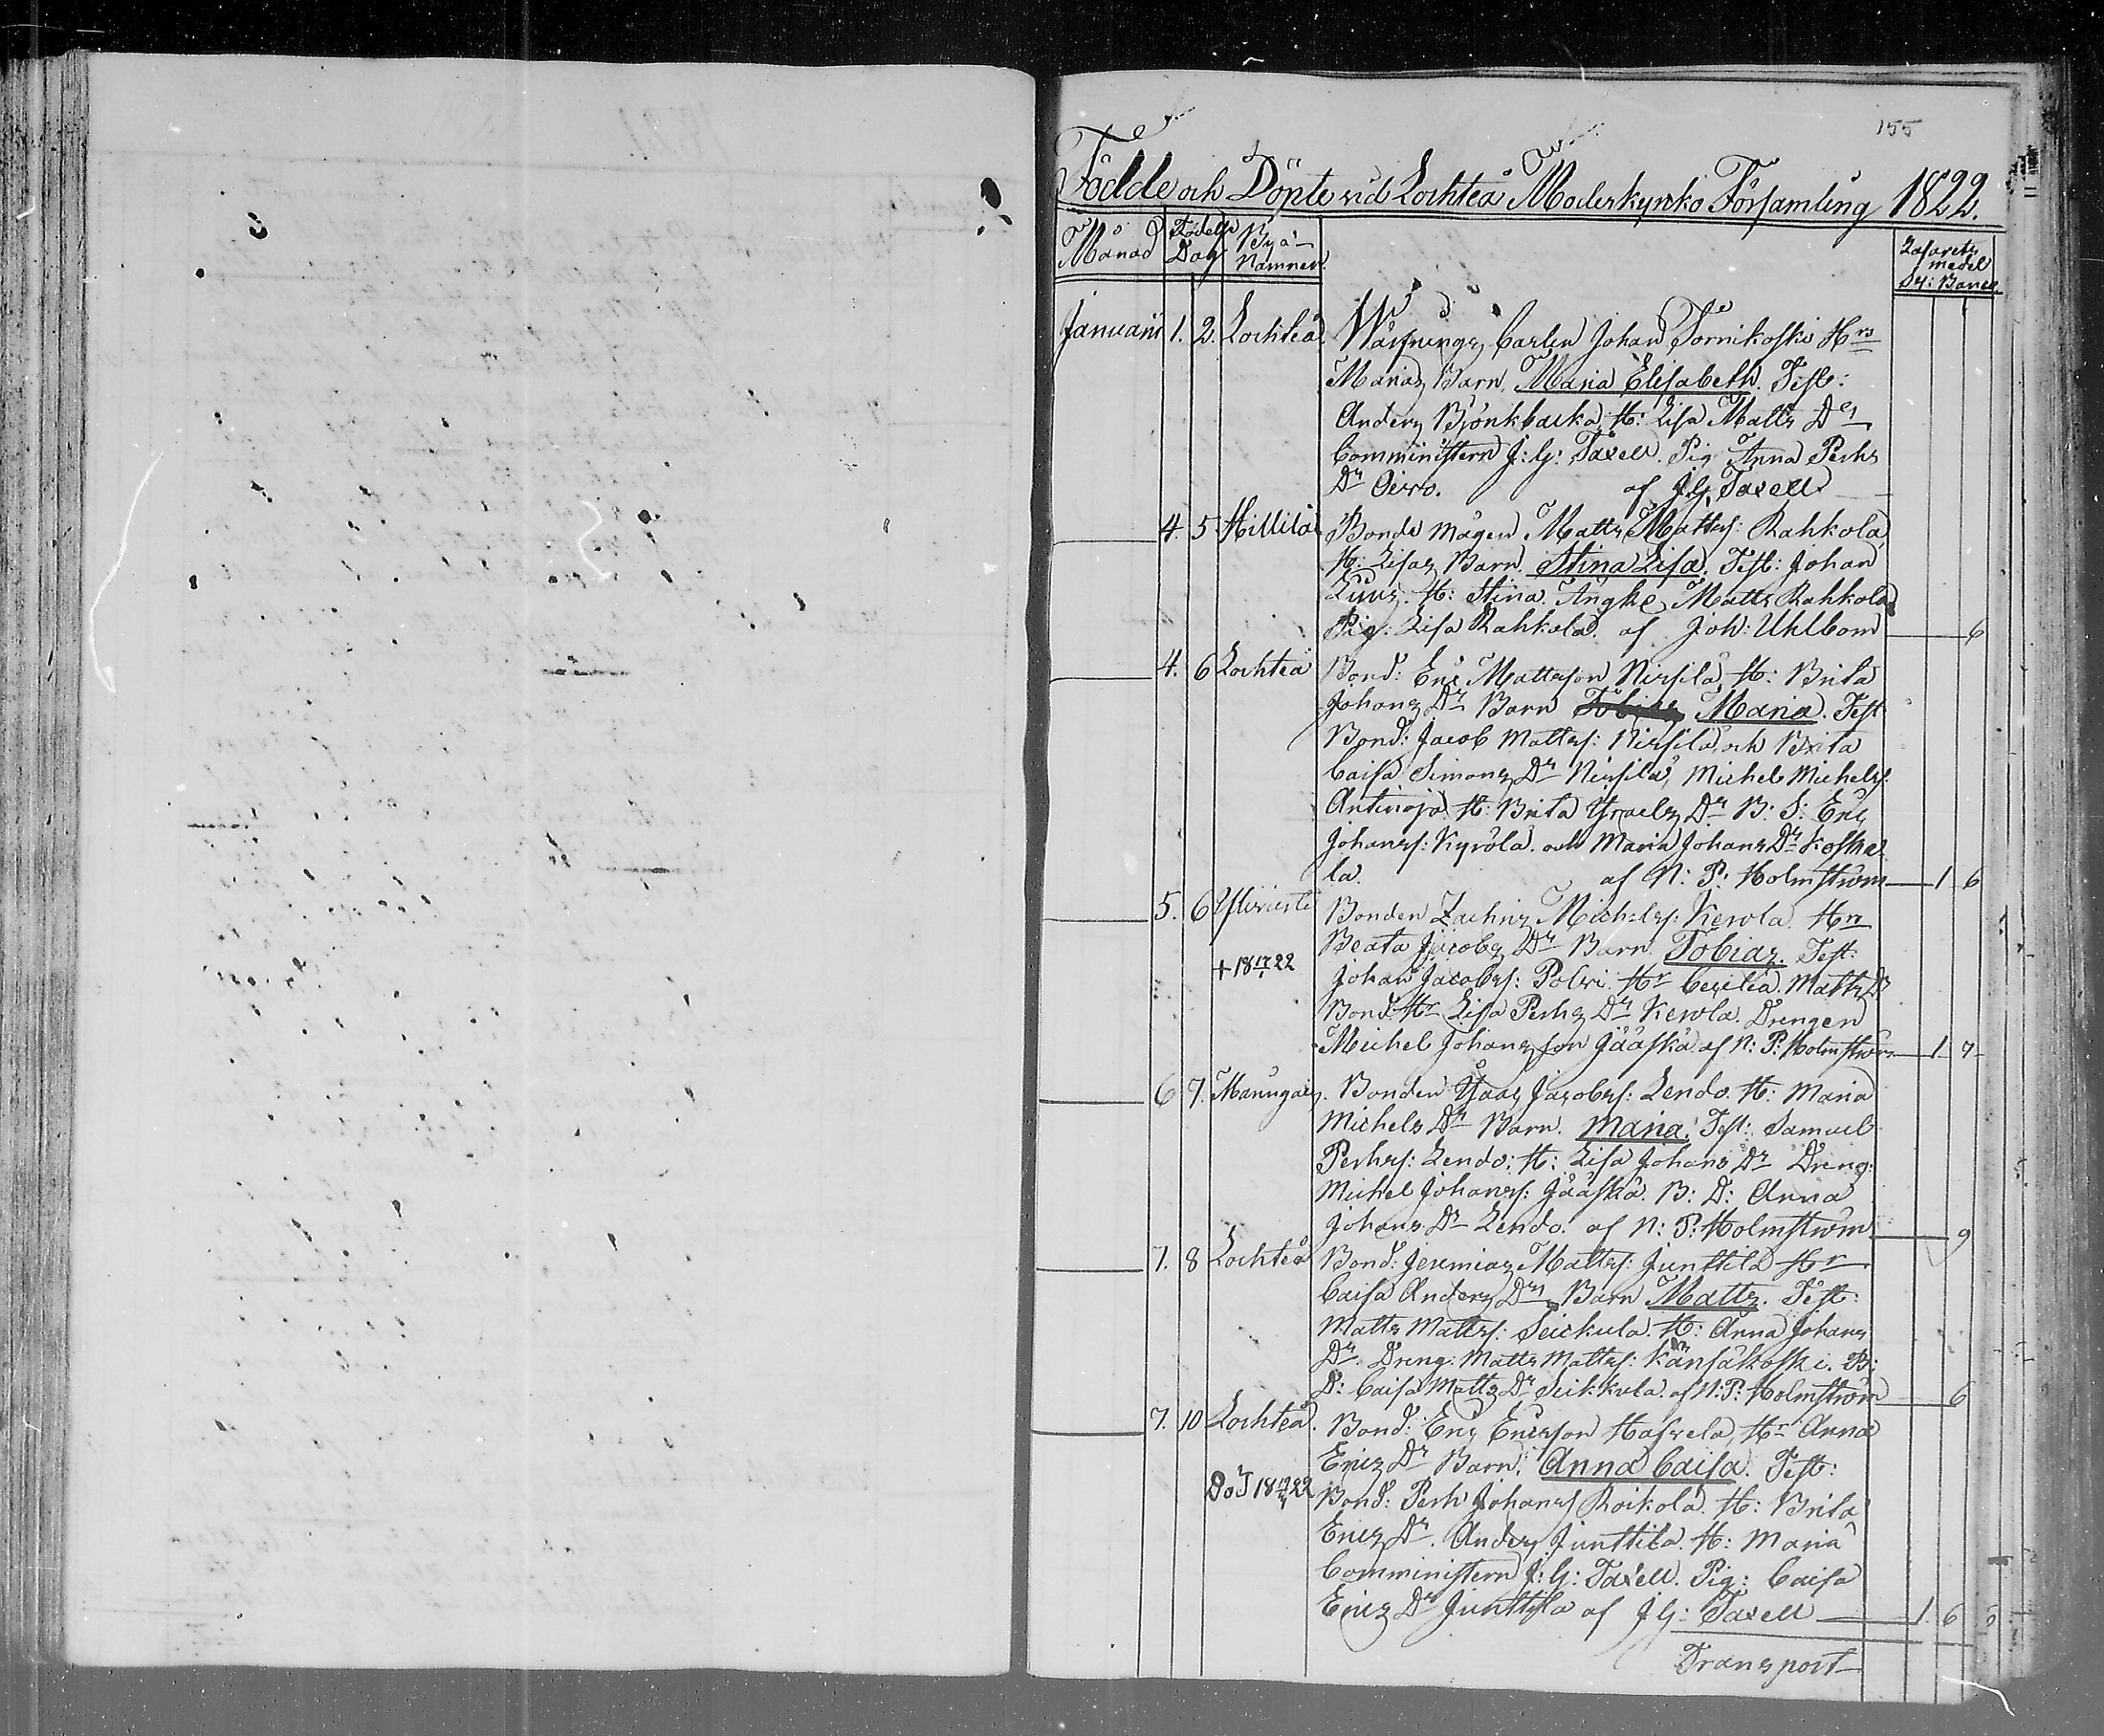 155
Födde och Döpte vid Lochteå Moderkyrko Församling 1822.
Månad Födelse Dag Byä-Namnen. Lazarets medel Sr: Banco.
Januarii 1. 2. Lochteå. Carlen Johan Tornikoski Hrs
Marias Barn. Maria Elisabeth. Test:
Anders Björkbacka, H: Lisa Matts Dr
Comministern J: G: Taxell. Pig Anna Pehrs
Dr Oiro. af J G Taxell
4. 5 Hillilä Bonde mågen Matts Mattss: Rahkola
H: Lisas Barn. Stina Lisa. Test: Johan
H: Stina. Matts Rahkola
Pig: Lisa Rahkola. af Joh: Uhlbom 6
4. 6 Lochteå Bond: Eric Mattsson Nirsilä H: Brita
Johans Dr Barn Tobias Maria. Test
Bond: Jacob Mattss: Nirsilä, och Brita
Caisa Simons Dr Nirsilä, Michel Michelss:
Antinoja H: Brita Ysraels Dr B: S: Eric
Johanss: Kyrölä. och Maria Johans Dr Koske
la. af N: P: Holmström 1 6
5. 6 Ylivieste Bonden Zachris Michelss: Kerola Hru
Beata Jacobs Dr Barn Tobias. Test:
+ 18 17/1 22 Johan Jacobss: Polvi. Hr Cecilia Matts Dr
Bond: Hr Lisa Pehrs Dr Kerola. Drengen
Michel Johansson Jääskä af N: P: Holmström 1 7
6 7. Maringais. Bonden Ysaac Jacobss: Lendo. H: Maria
Michels Dr Barn. Maria. Test: Samuel
Pehrss: Lendo: H: Lisa Johans Dr Dreng:
Michel Johanss: Jääskä. B: D: Anna
Johans Dr Lendo. af N: P: Holmström 9
7. 8 Lochteå Bond: Jeremias Mattss: Junttila Hr
Caisa Anders Dr Barn Matts. Test:
Matts Mattss: Seickula. H: Anna Johans
Dr. Dreng: Matts Mattss: Känsäkoski. B:
D: Caisa Matts Dr Seikkula. af N: P: Holmström 6
7. 10 Lochteå. Bond: Eric Ericsson Hassela, Hr Anna
Erics Dr Barn: Anna Caisa. Test:
Död 18 22 Bond: Pehr Johanss Roikola. H: Brita
Erics Dr. Anders Junttila. H: Maria
Comministern J: G: Taxell. Pig: Caisa
Erics Dr Junttila af J G: Taxell 1. 6
Transport